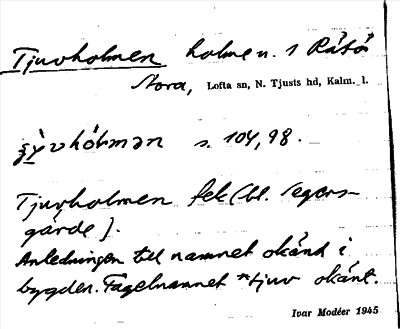 Tjuvholmen holme n. i Råtö
Stora, Lofta sn, N. Tjusts hd, Kalm. l.
s. 104, 98.
Tjuvholmen fek (bl. Segers-
gärde].
Anledningen till namnet okänd i
bygden. Fågelnamnet *tjuv okänt.
Ivar Modéer 1945